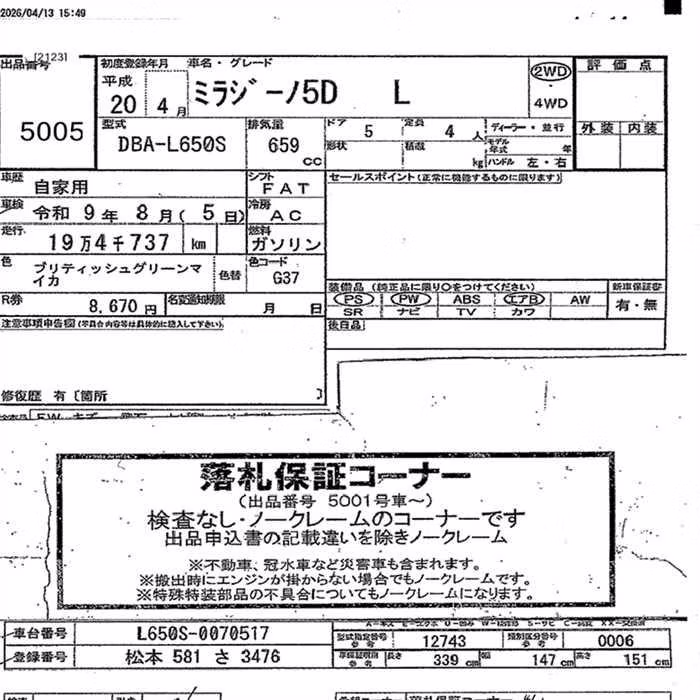 2026/04/13 15:49
出品番号 [2123]
5005
初度登録年月 車名・グレード
平成 20 4月 ミラジーノ5D L
2WD
・
4WD
評価点
外装 内装
型式 排気量 ドア 5 定員 4人 ディーラー・並行
DBA-L650S 659 cc 形状 積載 kg モデル年式 年
ハンドル 左・右
車歴 自家用 シフト FAT
セールスポイント(正常に機能するものに限ります)
車検 令和 9年 8月( 5日) 冷房 AC
走行 19万4千737 km 燃料 ガソリン
色 ブリティッシュグリーンマイカ 色替 色コード G37
装備品(純正品に限り○をつけてください) 新車保証書
PS PW ABS エアB AW 有・無
SR ナビ TV カワ
R券 8,670円 名変通知期限 月 日
後日品
注意事項申告欄(不具合内容等は具体的に記入して下さい)
修復歴 有〔箇所 〕
落札保証コーナー
(出品番号 5001号車~)
検査なし・ノークレームのコーナーです
出品申込書の記載違いを除きノークレーム
※不動車、冠水車など災害車も含まれます。
※搬出時にエンジンが掛からない場合でもノークレームです。
※特殊特装部品の不具合についてもノークレームになります。
車台番号 L650S-0070517 型式指定番号 参考 12743 類別区分番号 参考 0006
登録番号 松本 581 さ 3476 長さ 339cm 幅 147cm 高さ 151cm